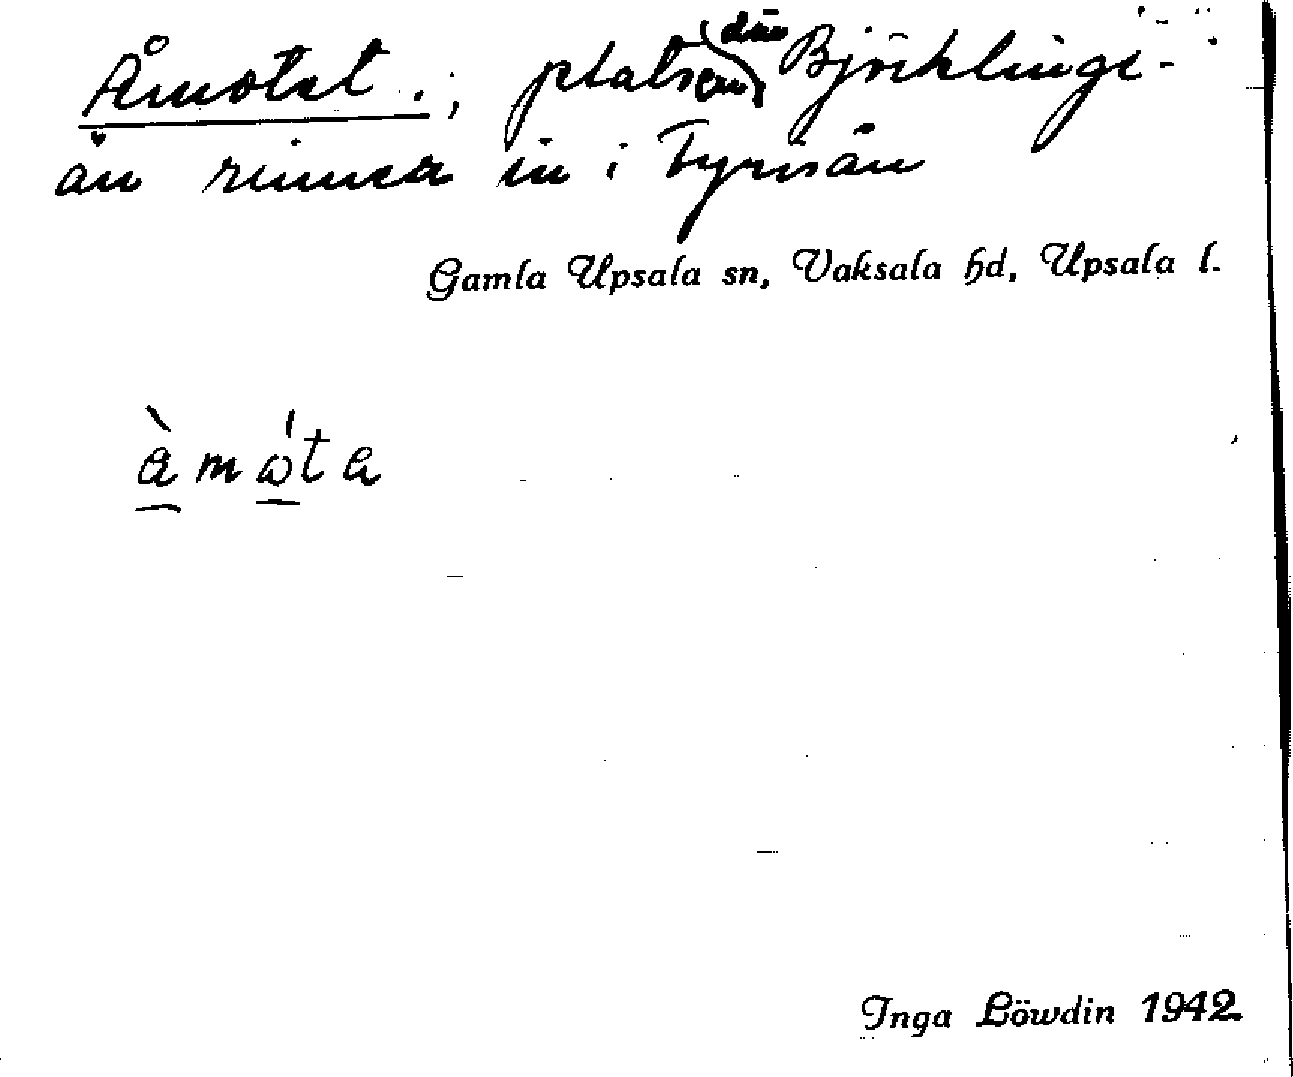 Åmotet.; platsen där Björklinge-
ån rinner in i Fyrisån
Gamla Upsala sn, Vaksala hd, Upsala l.
àmὼta
Inga Löwdin 1942.